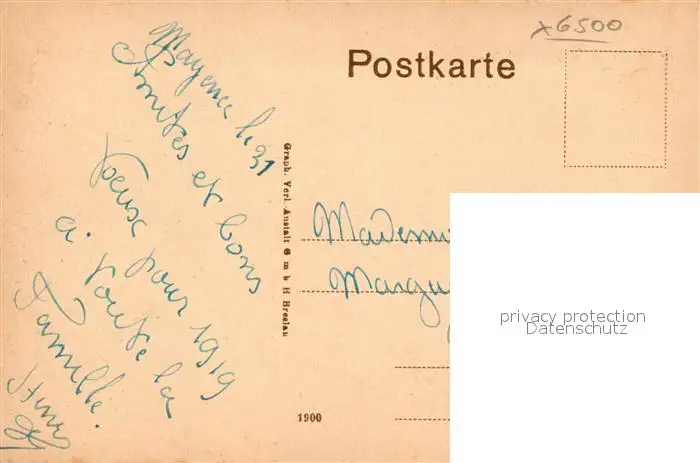 x6500
Postkarte
Mayence le 31
Amitiés et bons
voeux pour 1919
à toute la
famille.
Graph. Verl. Anstalt G m b H Breslau
Mademoi
Margu
privacy protection
Datenschutz
1900